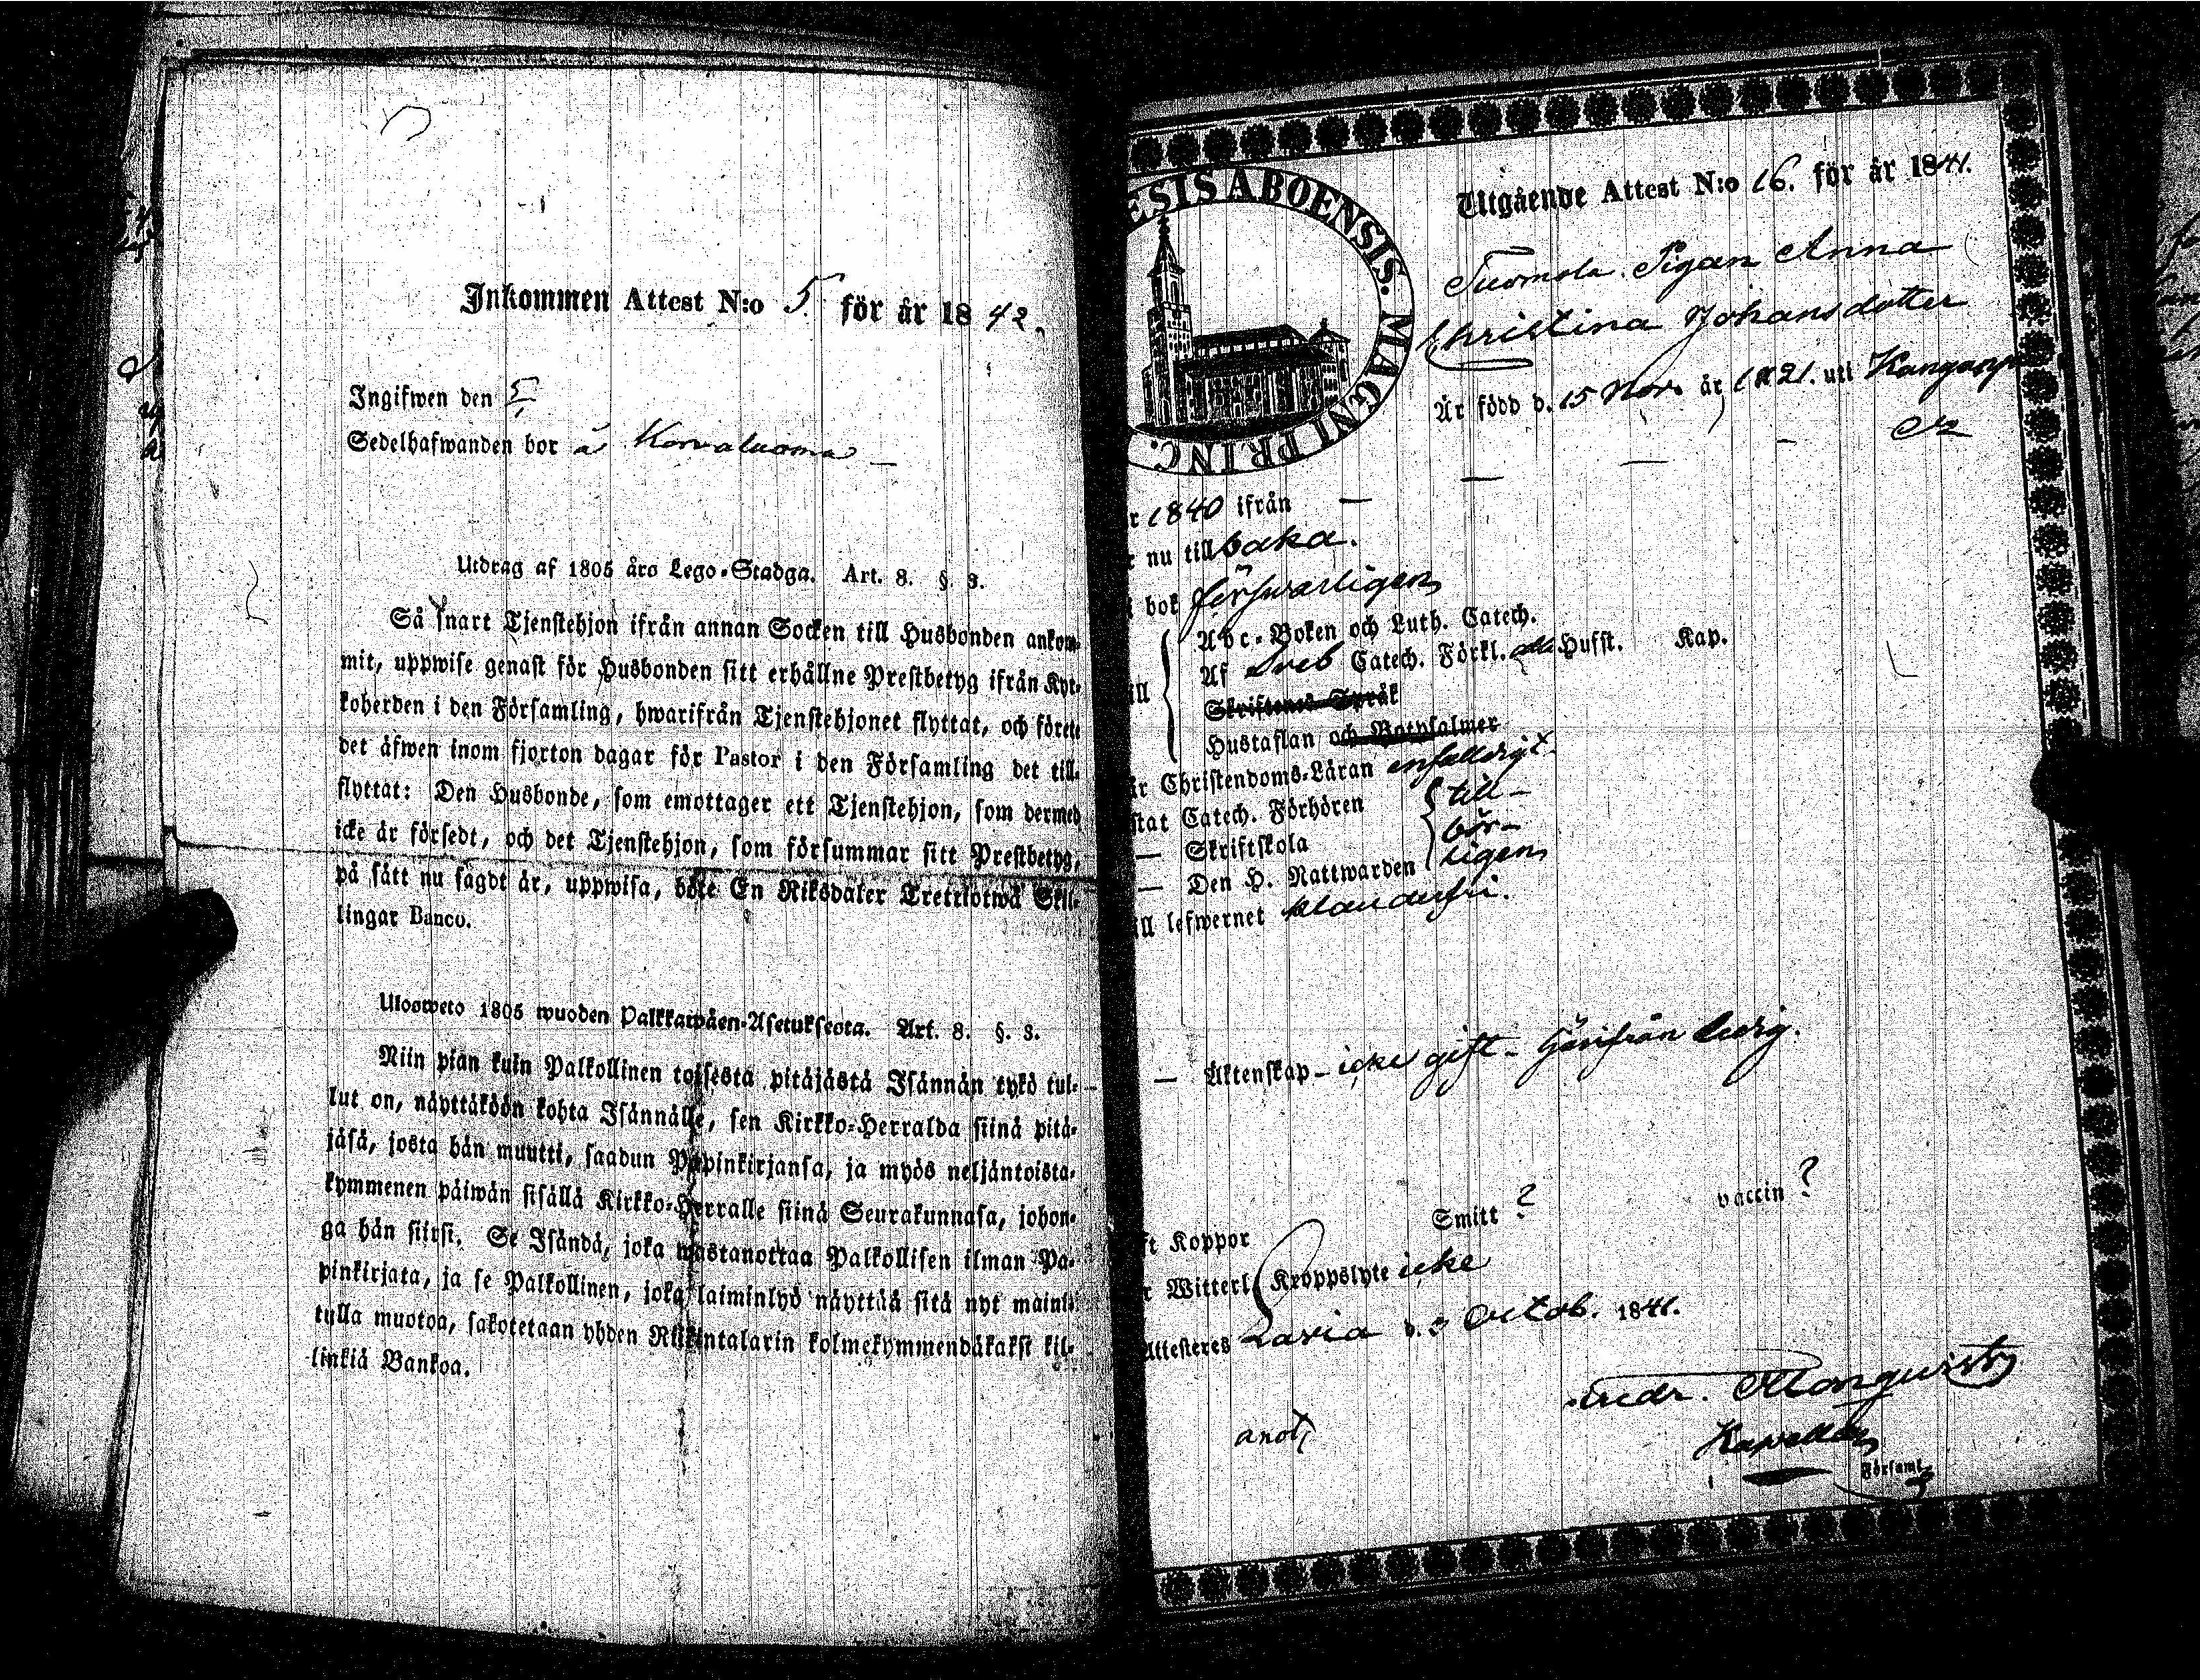 Inkommen Attest N:o 5. för år 1842.
Ingifwen den 5/
Sedelhafwanden bor å Korvaluoma
Utdrag af 1805 års Lego-Stadga. Art. 8. §. 3.
Så snart Tjenstehjon ifrån annan Socken till Husbonden ankom-
mit, uppwise genast för Husbonden sitt erhållne Prestbetyg ifrån Kyr-
koherden i den Församling, hwarifrån Tjenstehjonet flyttat, och förete
det äfwen inom fjorton dagar för Pastor i den Församling det till-
flyttat: Den Husbonde, som emottager ett Tjenstehjon, som dermed
icke är försedt, och det Tjenstehjon, som försummar sitt Prestbetyg,
på sätt nu sagdt är, uppwisa, böte En Riksdaler Trettiotwå Skil-
lingar Banco.
Ulosweto 1805 wuoden Palkkawäen-Asetuksesta. Art. 8. §. 3.
Niin pian kuin Palkollinen toisesta pitäjästä Isännän tykö tul-
lut on, näyttäköön kohta Isännälle, sen Kirkko-Herralda siinä pitä-
jäsä, josta hän muutti, saadun Papinkirjansa, ja myös neljäntoista-
kymmenen päiwän sisällä Kirkko-Herralle siinä Seurakunnasa, johon-
ga hän siirsi. Se Isändä, joka wastanottaa Palkollisen ilman Pa-
pinkirjata, ja se Palkollinen, joka laiminlyö näyttää sitä nyt mainit-
tulla muotoa, sakotetaan yhden Riikintalarin kolmekymmendäkaksi kil-
linkiä Bankoa.
ESIS ABOENSIS. MAGNI PRINC.
Utgående Attest N:o 16. för år 1841.
Tuomola Pigan Anna
Christina Johansdotter
Är född d. 15 Nov. år 1821. uti
r 1840 ifrån —
r nu tillbaka.
i bok försvarligen
ill Abc-Boken och Luth. Catech.
Af Sveb Catech. Förkl. alla Hufst. Kap.
Skriftens Språk
Hustaflan och Botpsalmer
är Christendoms-Läran enfalldigt.
stat Catech. Förhören till-
— Skriftskola bör-
— Den H. Nattwarden ligen
ill lefwernet klanderfri.
— Äktenskap - icke gift - härifrån ledig.
ft Koppor Smitt ? vaccin ?
r Witterl. Kroppslyte icke
Attesteres Lavia d. 3 Octob. 1841.
Kapellan
Församl.